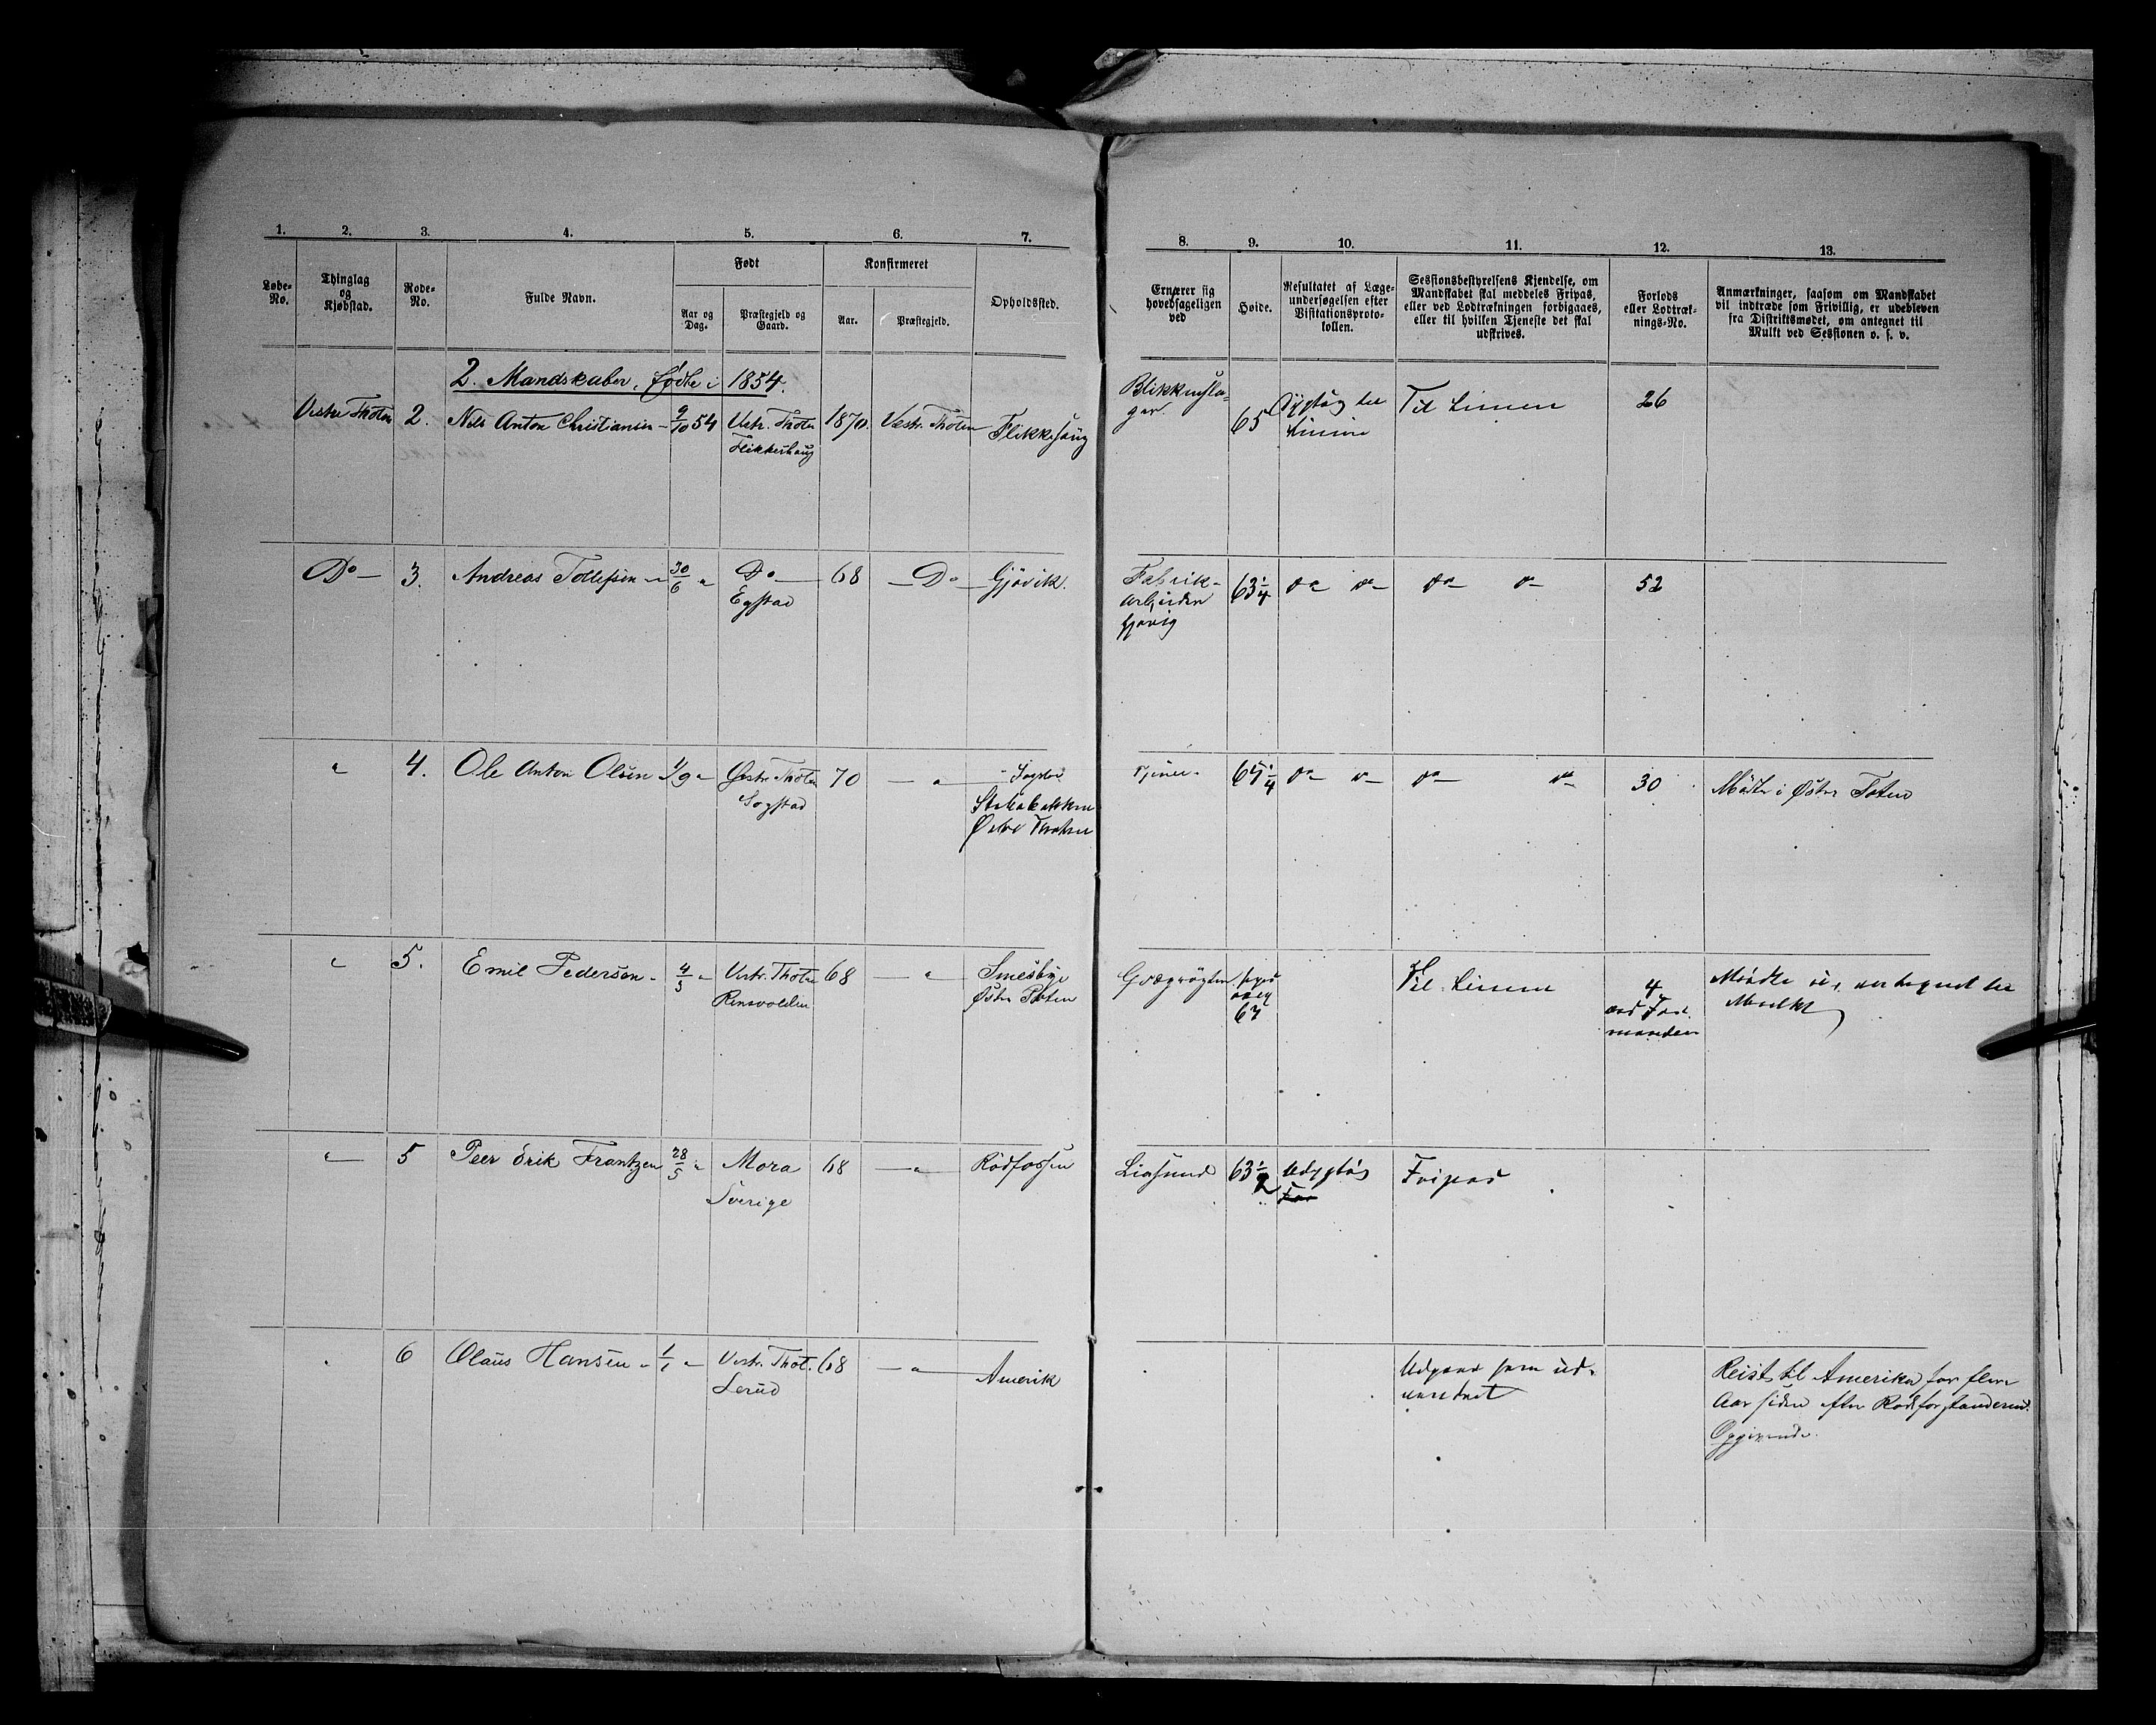 1. 2. 3. 4. 5. 6. 7.
Løbe-No. Thinglag og Kjøbstad. Rode-No. Fulde Navn. Født Konfirmeret Opholdssted.
Aar og Dag. Præstegjeld og Gaard. Aar. Præstegjeld.
2. Mandskaber, fødte i 1854.
Vestre Thoten 2. Nils Anton Christiansen - 9/10 54 Vestr. Thoten 1870. Vestr. Thoten
Flikkeshaug
Do 3. Andreas Tollefsen 30/6 " Do 68 Do Gjøvik.
Egstad
" 4. Ole Anton Olsen 1/9 " Østr. Thoten 70 "
Sogstad
Østre Thoten
" 5. Emil Pedersen - 4/5 " Vestr. Thoten 68 " Smesbye
Rensvolden Østre Toten
" 5 Peer Erik Frantzen 28/5 " Mora 68 " Rødfossen
Sverige
6 Olaus Hansen 1/1 " Vestr. Thot. 68 " Amerik
Lerud
8. 9. 10. 11. 12. 13.
Ernærer sig hovedsageligen ved
Høide.
Resultatet af Lægeundersøgelsen efter Visitationsprotokollen.
Sessionsbestyrelsens Kjendelse, om Mandskabet skal meddeles Fripas, eller ved Lodtrækningen forbigaaes, eller til hvilken Tjeneste det skal udskrives.
Forlods eller Lodtræknings-No.
Anmærkninger, saasom om Mandskabet vil indtræde som Frivillig, er udebleven fra Distriktsmødet, om antegnet til Mulkt ved Sessionen o. s. v.
Blikkenslager. 65 Dygtig til Linien Til Linien 26
Fabrik- 63 1/4 do do do do 52
arbeider
Gjøvig
Tjener do do do do 30 Mødte i Østre Toten
67 Til Linien 4 Mødte ei, antegnet til
ved For- Mulkt
manden
63 1/2 Udygtig Fripas
Udgaar som ud- Reist til Amerika for flere
vandret Aar siden efter Rodeforstanderens
Opgivende.